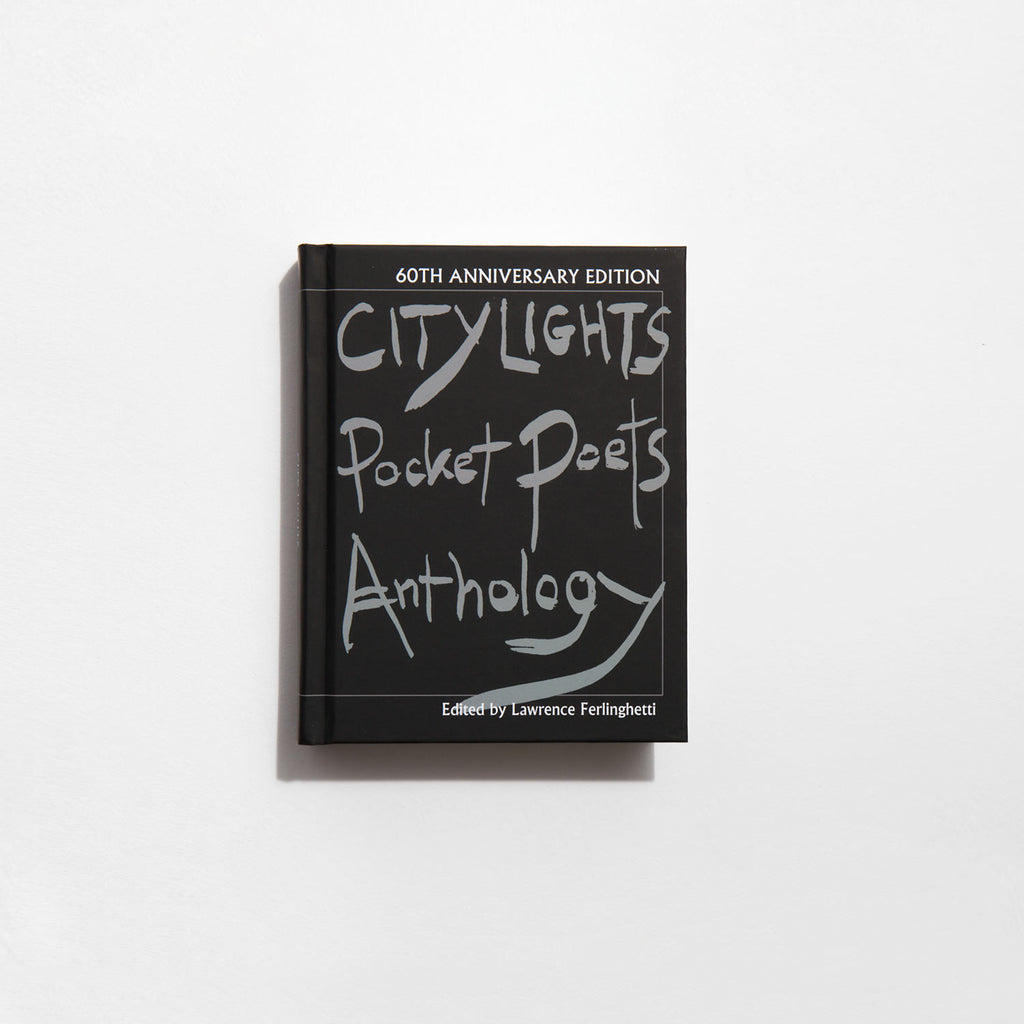 60TH ANNIVERSARY EDITION
CITYLIGHTS
Pocket Poets
Anthology
Edited by Lawrence Ferlinghetti